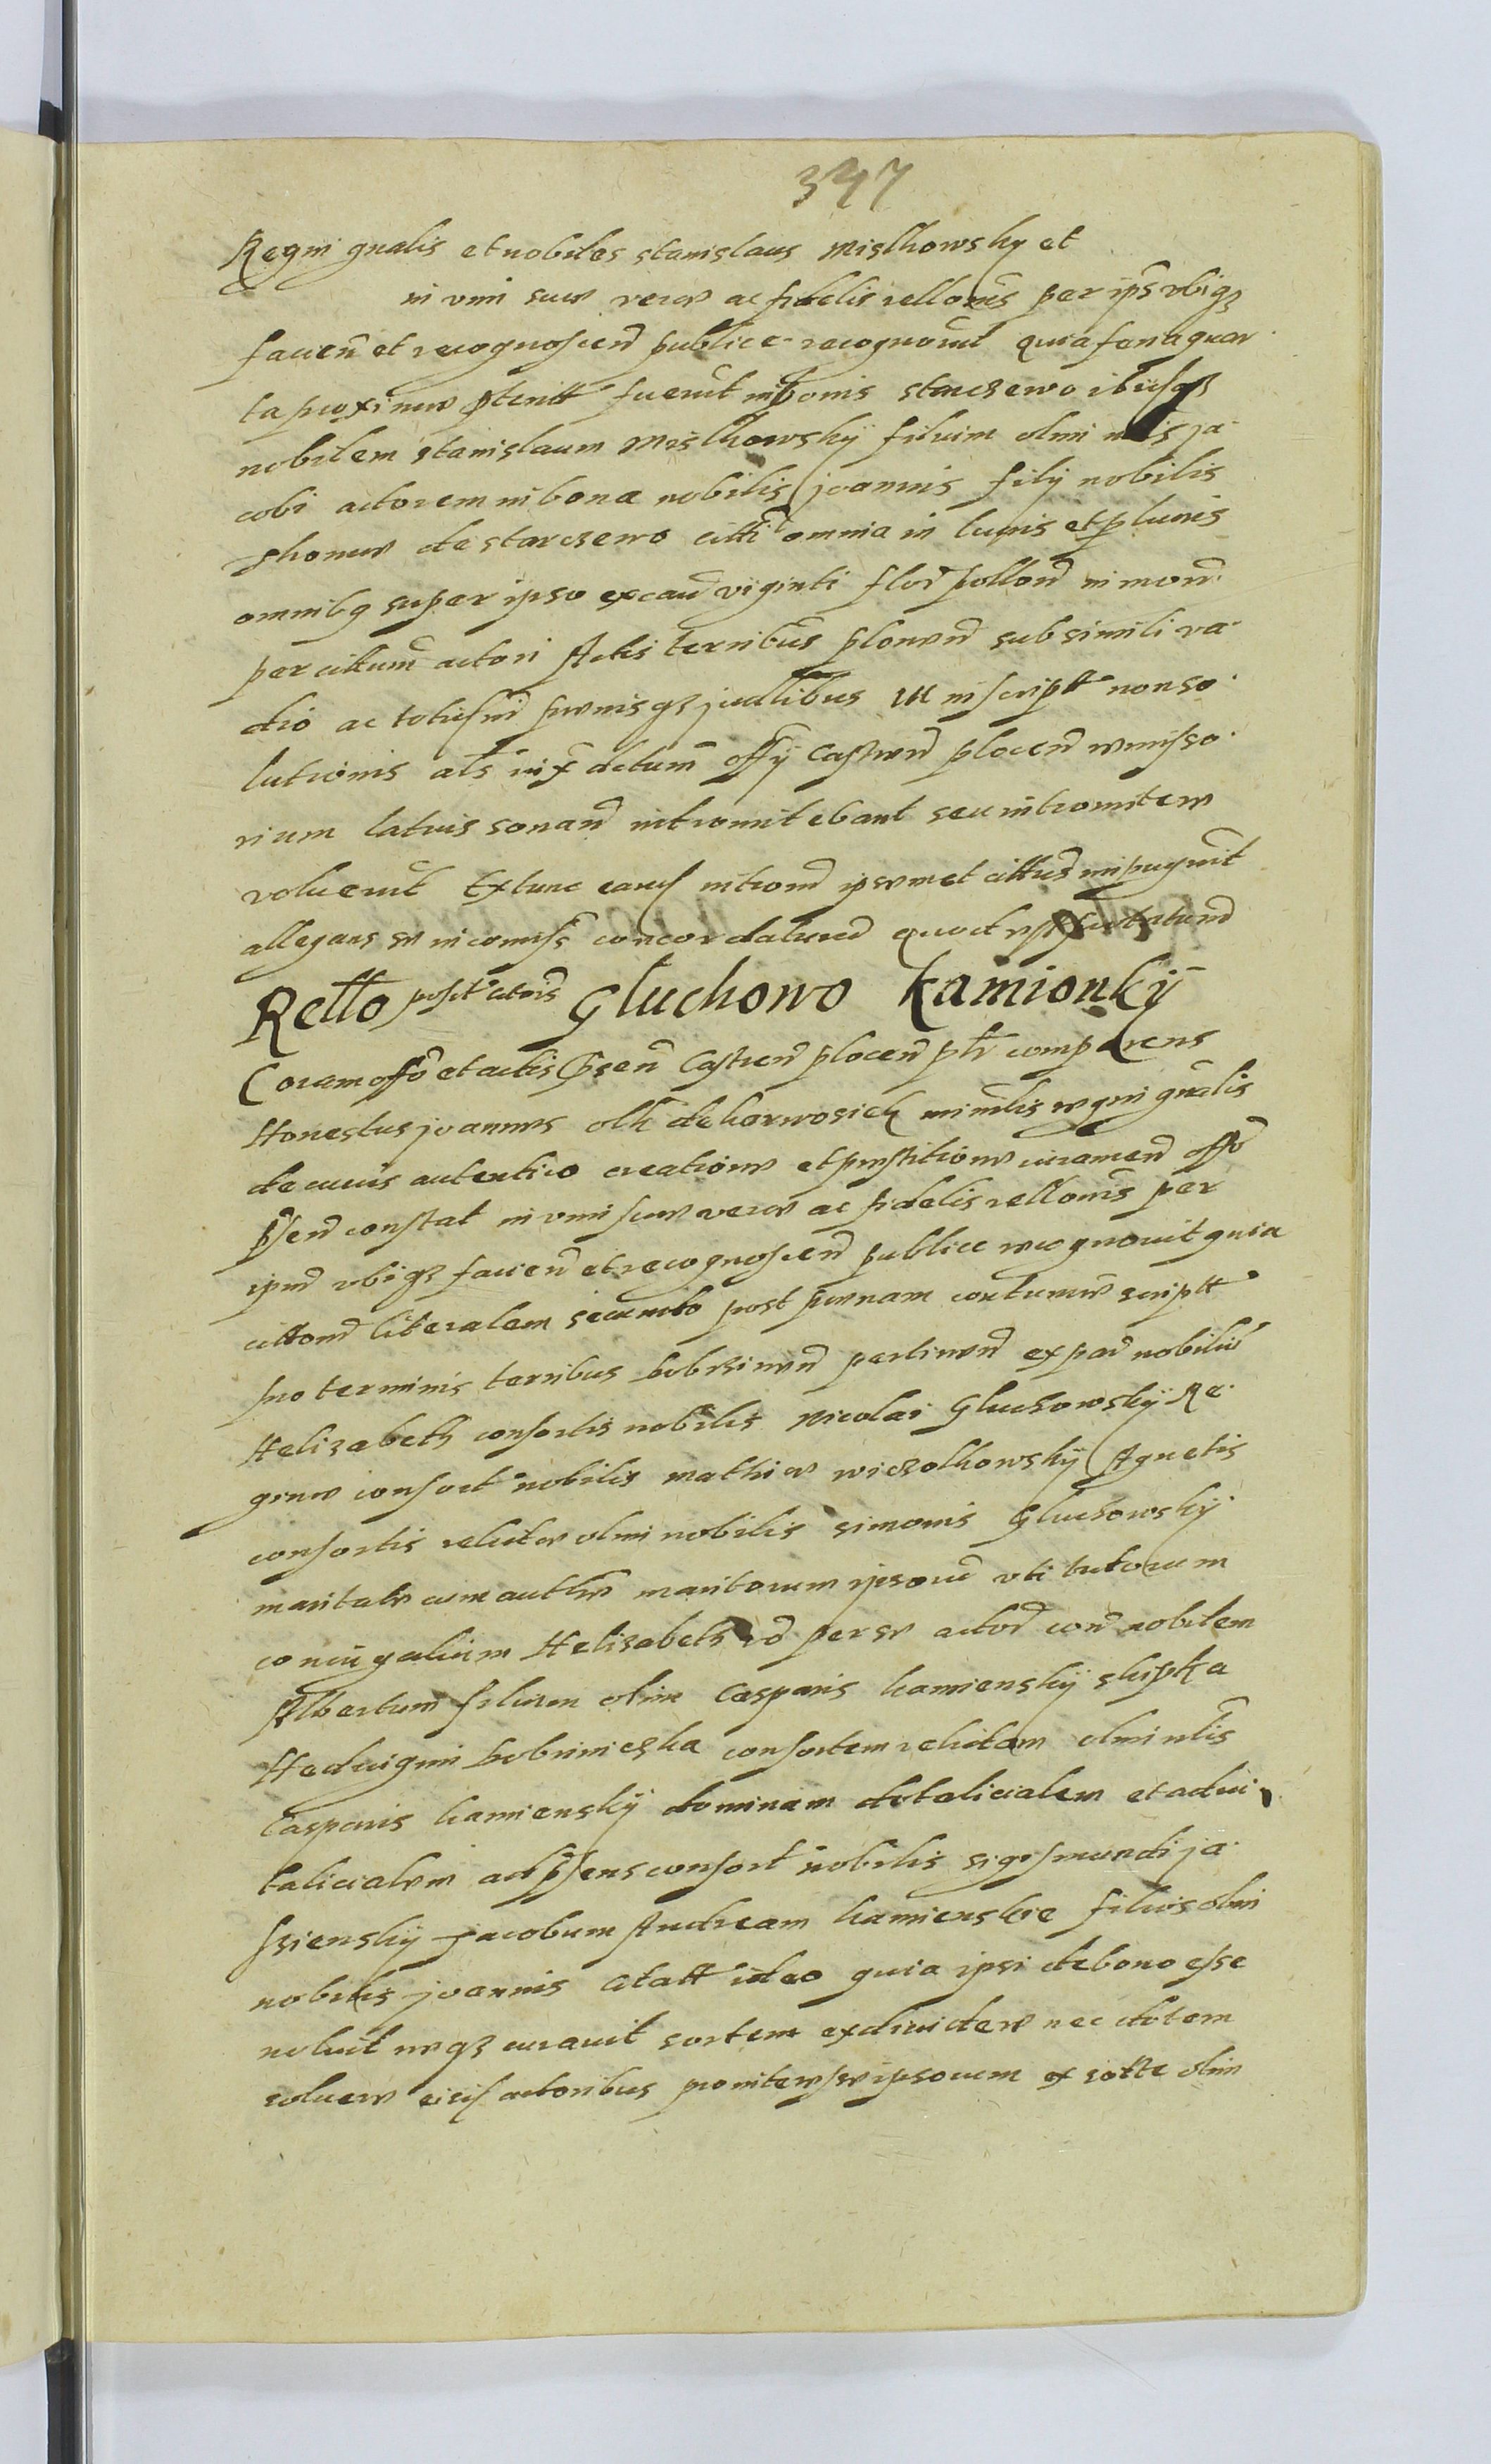 347
Regni gnalis et nobiles stanislaus Mislkowsky et
in vim sue vere ac fidelis rellonis per ips vbiqз
facien et recognoscen publice recognorut quia feria quar
ta proxime pteritt fuerut in bonis starczewo ibiqз
nobilem stanislaum Mislkowsky filium olim nlis ja
cobi actorem in bona nobilis joannis filij nobilis
de starczewo citti omnia in lucris et p lucris
omnibq super ipso ex cau viginti flor pollon in mon
per cittum actori Actis terribus plonen sub simili va
dio ac totusm sumisqз judlibus ut in script non so
lutionis als iux dctum offij Castren plocen remisso
rium latius sonan intromittebant seu intromittere
voluerut Extunc earu introm ipsemet cittus impugnit
allegans se in comiss concordaturu quod
Rello posit citois Gluchowo Kamionky
Coram offo et actis psen Castren plocen plr comparens
Honestus joannes olk de karwosieky minilis regni gnalis
de cuius autentico creatione et prestitione iuramen offo
psen constat in vim sue vere ac fidelis rellonis per
ipm vbiqз facien et recognoscen publice recognouit quia
cittom literalem secundo post penam contumie scriptt
pro terminis terribus bobrinen pertinen ex par nobiliu
Helizabeth consortis nobilis Nicolai Gluchowsky Re
gine consort nobilis mathie wiczolkowsky Agnetis
consortis relicte olim nobilis simonis Gluchowsky
maritate cum authe maritorum ipsoru vti tutorum
coniugalium Helizabeth vo per se actor con nobilem
Albertum filium olim Casparis kamiensky skipka
Hedwigim bobrinieska consortem relictam olim nlis
Casparis kamiensky dominam dotalicialem et adui
talicialem ad psens consort nobilis sigismundi ja
sziensky jacobum Andream kamienskie filios olim
nobilis joannis citatt ideo quia ipsi debono esse
noluit neqз curauit sortem exdiuidere nec dotem
soluere eisd actoribus proniteressse ipsorum ex sorte olim